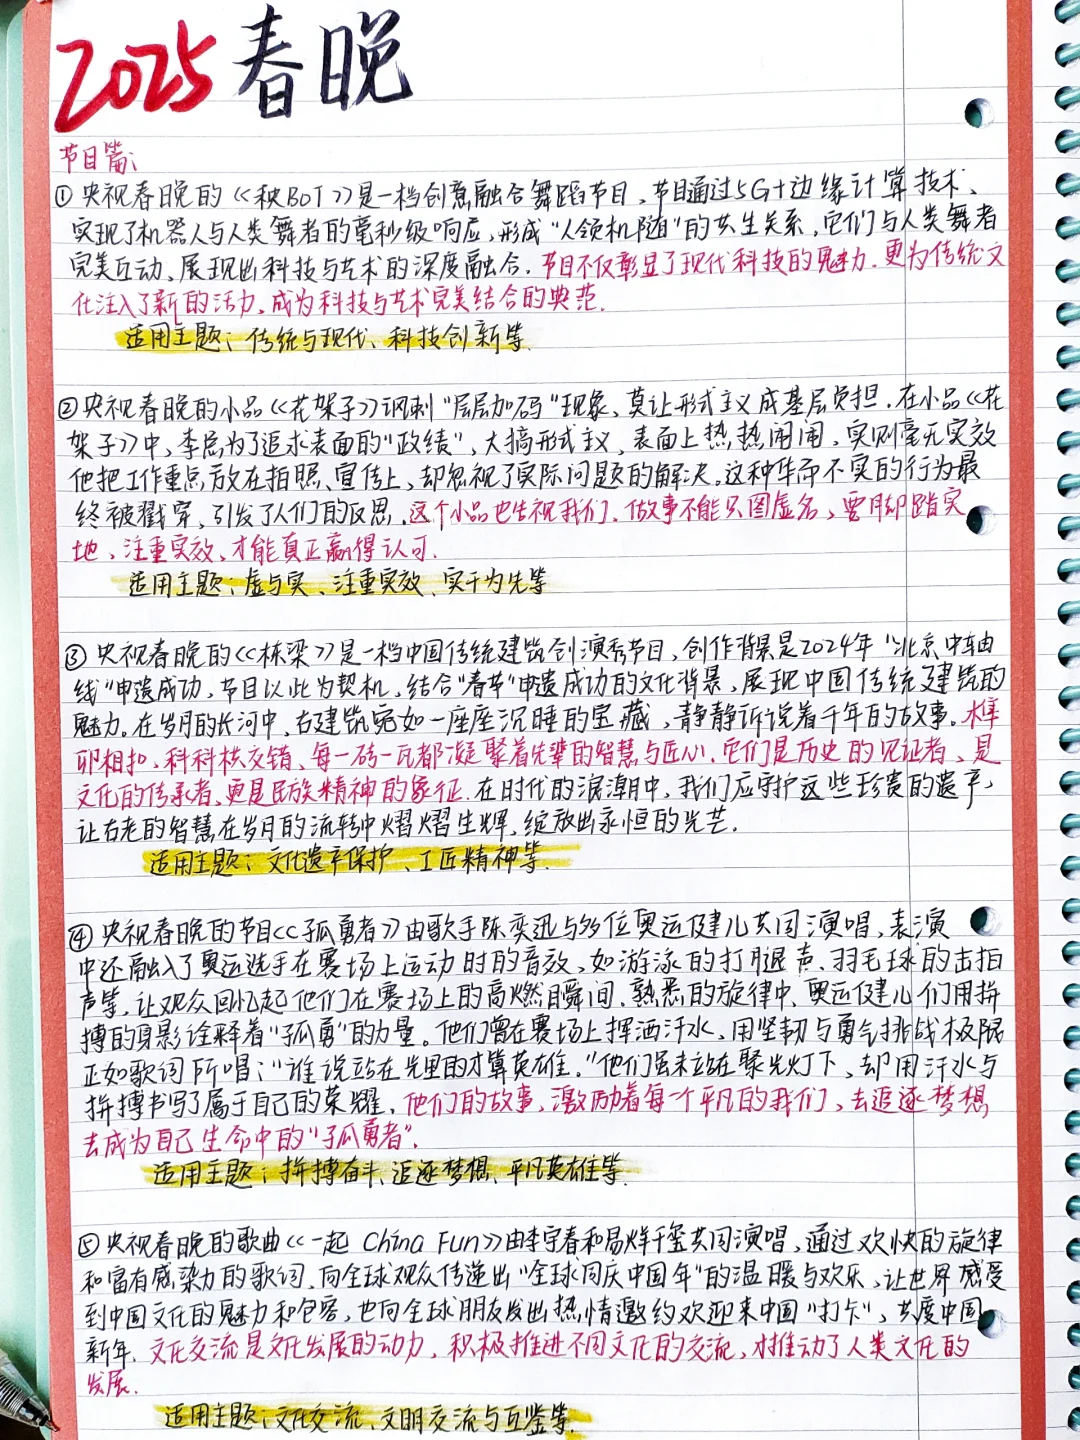 2025 春晚
节目篇:
① 央视春晚的《秧BOT》是一档创意融合舞蹈节目,节目通过5G+边缘计算技术、
实现了机器人与人类舞者的毫秒级响应,形成"人领机随"的共生关系,它们与人类舞者
完美互动、展现出科技与艺术的深度融合.节目不仅彰显了现代科技的魅力.更为传统文
化注入了新的活力,成为科技与艺术完美结合的典范.
适用主题:传统与现代、科技创新等.
② 央视春晚的小品《花架子》讽刺"层层加码"现象、莫让形式主义成基层负担.在小品《花
架子》中,李总为了追求表面的"政绩",大搞形式主义、表面上热热闹闹,实则毫无实效
他把工作重点放在拍照、宣传上,却忽视了实际问题的解决。这种华而不实的行为最
终被戳穿,引发了人们的反思.这个小品也告诫我们.做事不能只图虚名,要脚踏实
地、注重实效,才能真正赢得认可.
适用主题:虚与实、注重实效、实干为先等
③ 央视春晚的《栋梁》是一档中国传统建筑创演秀节目,创作背景是2024年"北京中轴
线"申遗成功,节目以此为契机,结合"春节"申遗成功的文化背景,展现中国传统建筑的
魅力。在岁月的长河中,古建筑宛如一座座沉睡的宝藏,静静诉说着千年的故事。榫
卯相扣,斗科栱交错、每一砖一瓦都凝聚着先辈的智慧与匠心.它们是历史的见证者、是
文化的传承者,更是民族精神的象征.在时代的浪潮中,我们应守护这些珍贵的遗产,
让古老的智慧在岁月的流转中熠熠生辉,绽放出永恒的光芒.
适用主题:文化遗产保护、工匠精神等.
④ 央视春晚的节目《孤勇者》由歌手陈奕迅与多位奥运健儿共同演唱,表演
中还融入了奥运选手在赛场上运动时的音效,如游泳的打腿声、羽毛球的击拍
声等,让观众回忆起他们在赛场上的高燃瞬间,熟悉的旋律中,奥运健儿们用拼
搏的身影诠释着"孤勇"的力量。他们曾在赛场上挥洒汗水,用坚韧与勇气挑战极限
正如歌词所唱:"谁说站在光里的才算英雄."他们虽未站在聚光灯下、却用汗水与
拼搏书写了属于自己的荣耀.他们的故事,激励着每一个平凡的我们,去追逐梦想
去成为自己生命中的"孤勇者".
适用主题:拼搏奋斗、追逐梦想、平凡英雄等.
⑤ 央视春晚的歌曲《一起 China Fun》由李宇春和易烊千玺共同演唱,通过欢快的旋律
和富有感染力的歌词,向全球观众传递出"全球同庆中国年"的温暖与欢乐,让世界感受
到中国文化的魅力和包容,也向全球朋友发出热情邀约欢迎来中国"打卡",共度中国
新年.文化交流是文化发展的动力,积极推进不同文化的交流,才推动了人类文化的
发展.
适用主题:文化交流、文明交流与互鉴等.